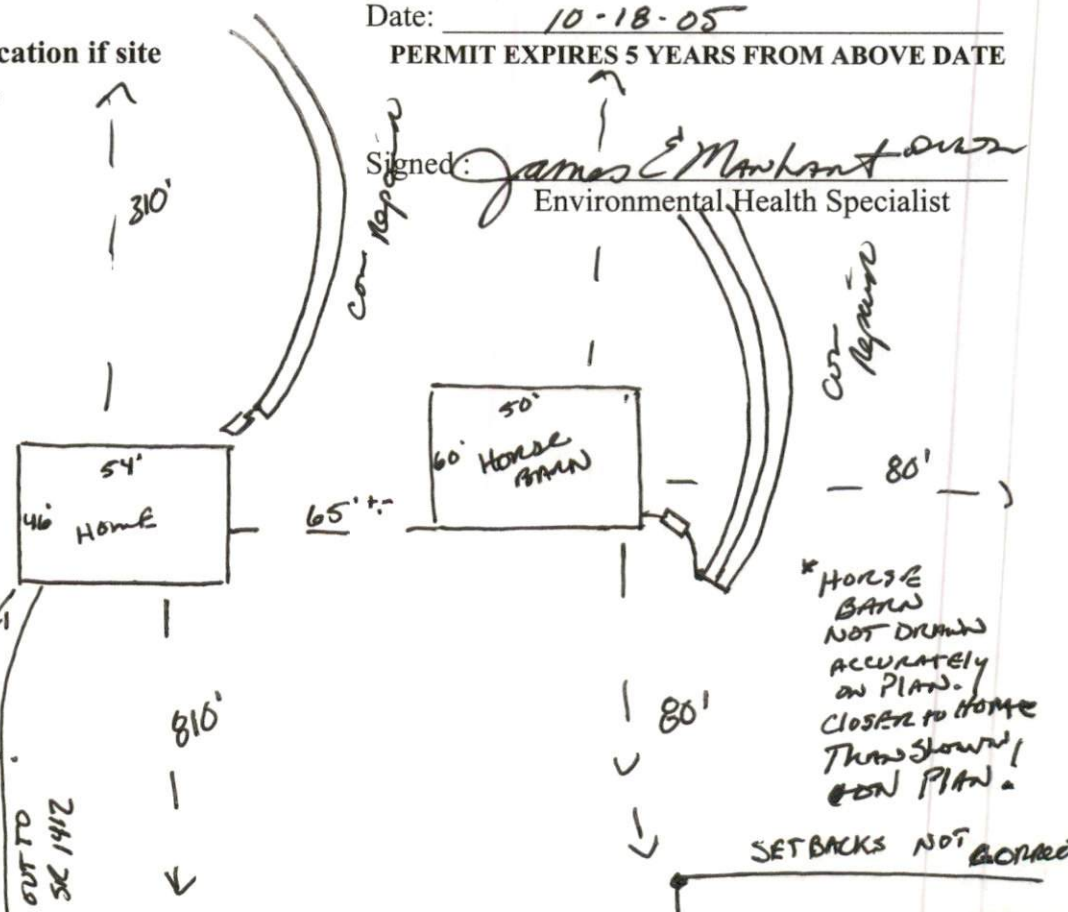 Date: 10-18-05
cation if site
PERMIT EXPIRES 5 YEARS FROM ABOVE DATE
Signed: James E Manhart
Environmental Health Specialist
310'
Con Repair
Con Repair
54'
46'
HOME
65' +-
50'
60'
HORSE
BARN
80'
* HORSE
BARN
NOT DRAWN
ACCURATELY
ON PLAN.
CLOSER TO HOME
THAN SHOWN
ON PLAN.
810'
80'
OUT TO
SR 1412
SETBACKS NOT